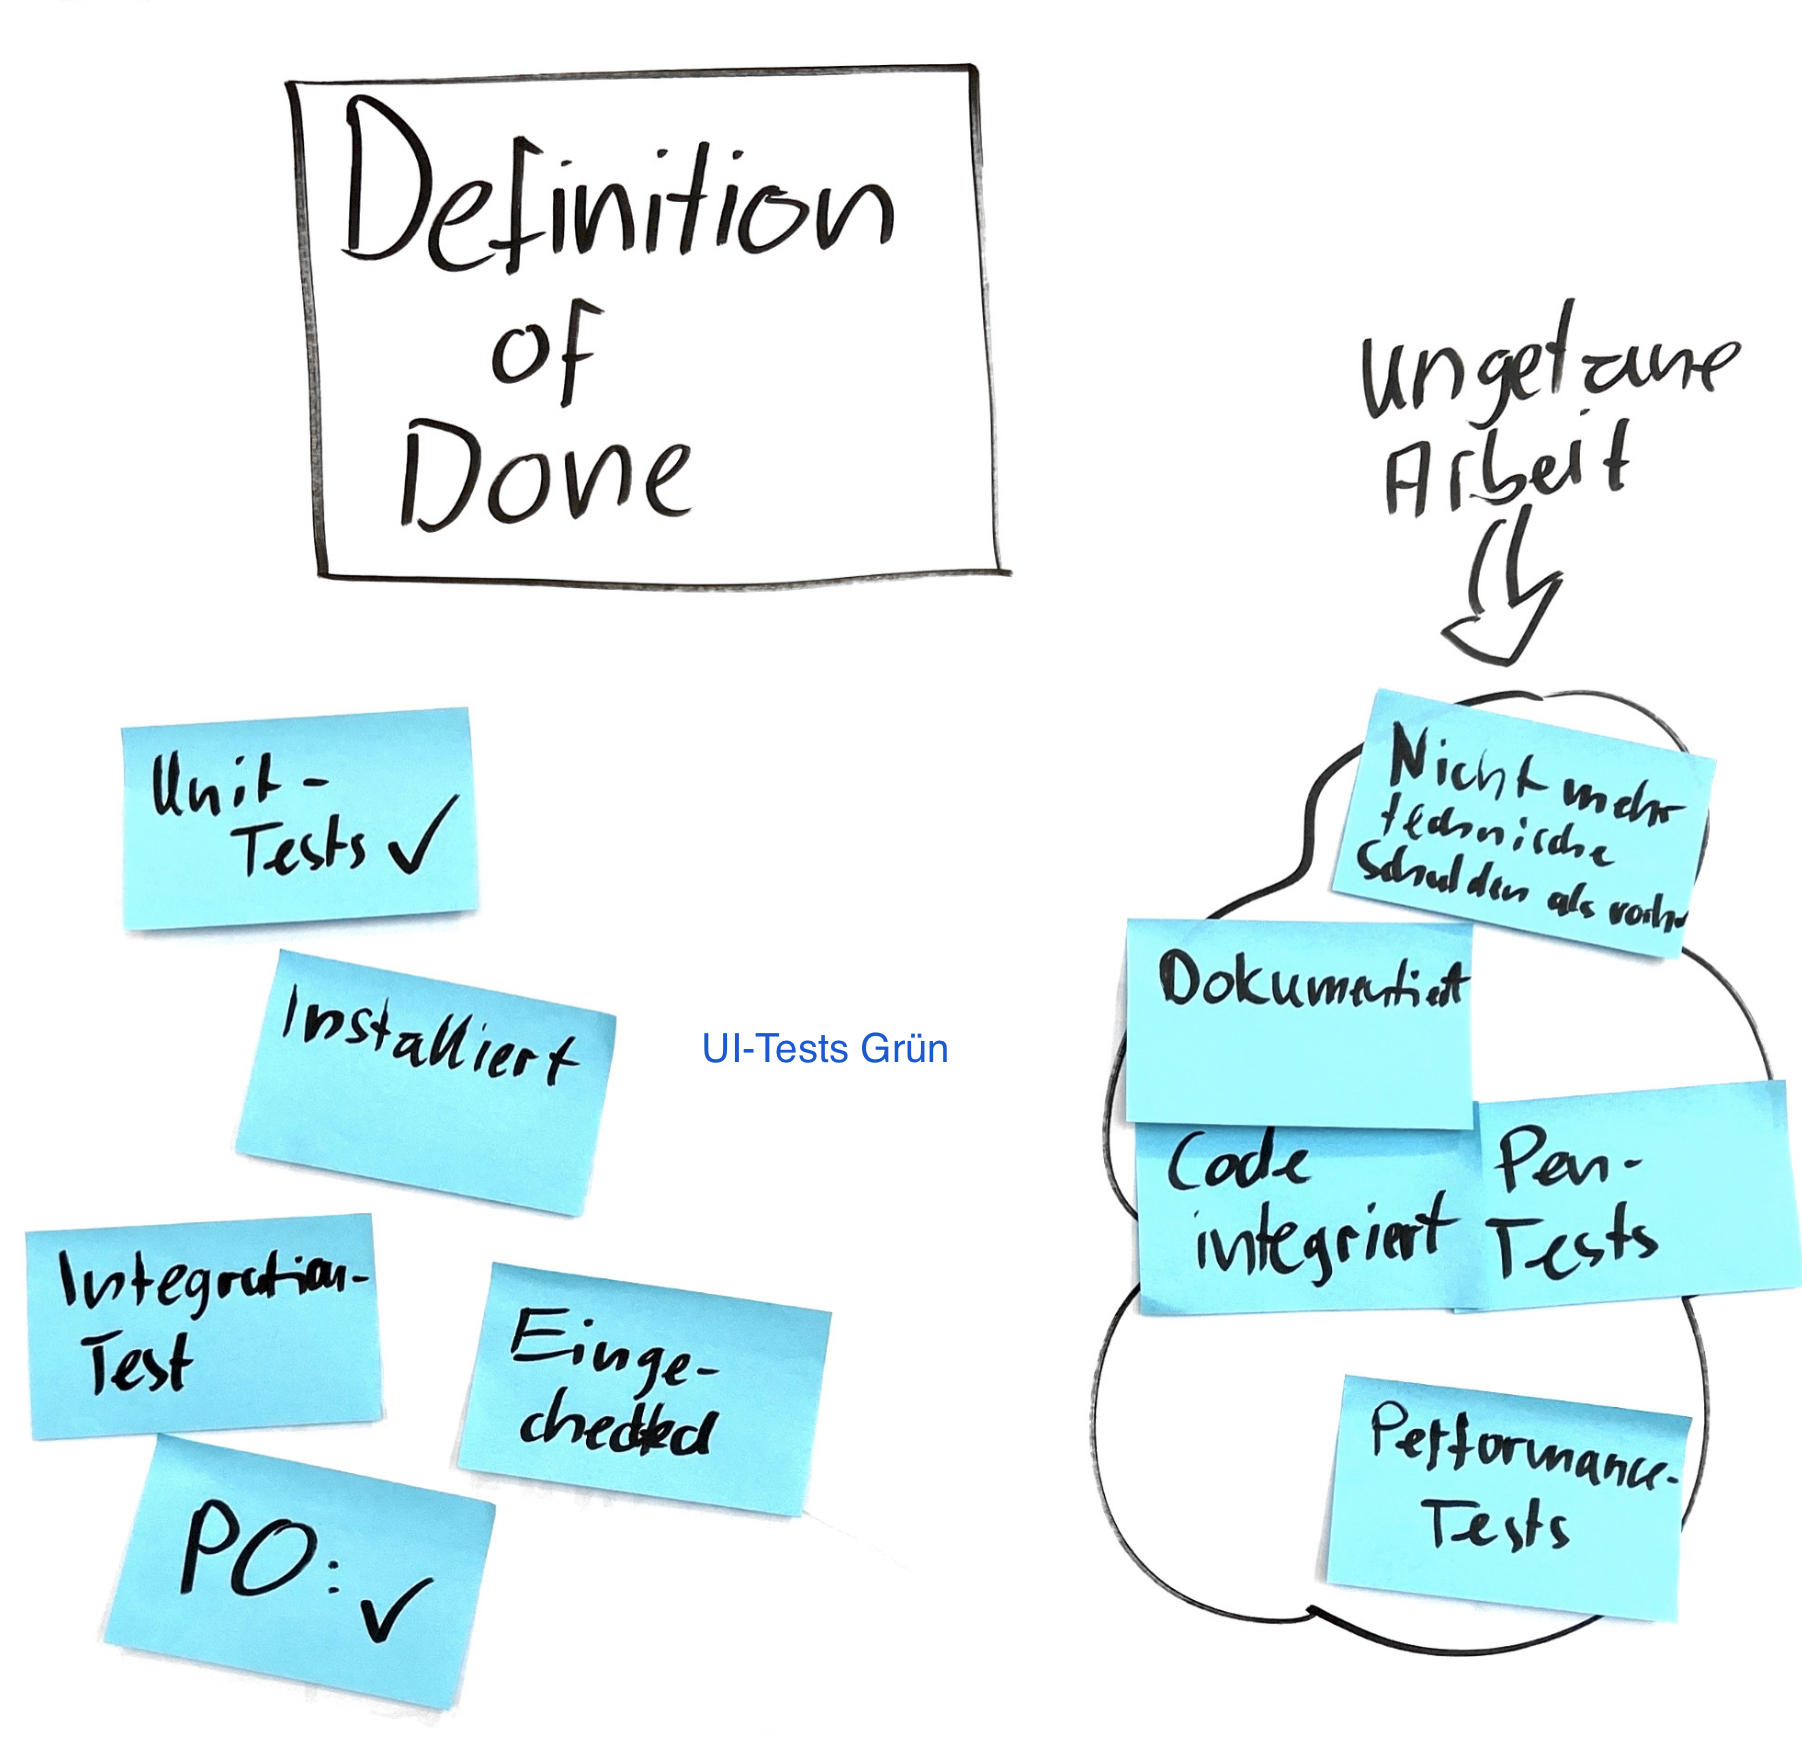 Definition
of
Done
ungetane
Arbeit
Unit-
Tests ✓
Installiert
UI-Tests Grün
Integration-
Test
Einge-
checked
PO: ✓
Nicht mehr
technische
Schulden als vorher
Dokumentiert
Code
integriert
Pen-
Tests
Performance-
Tests